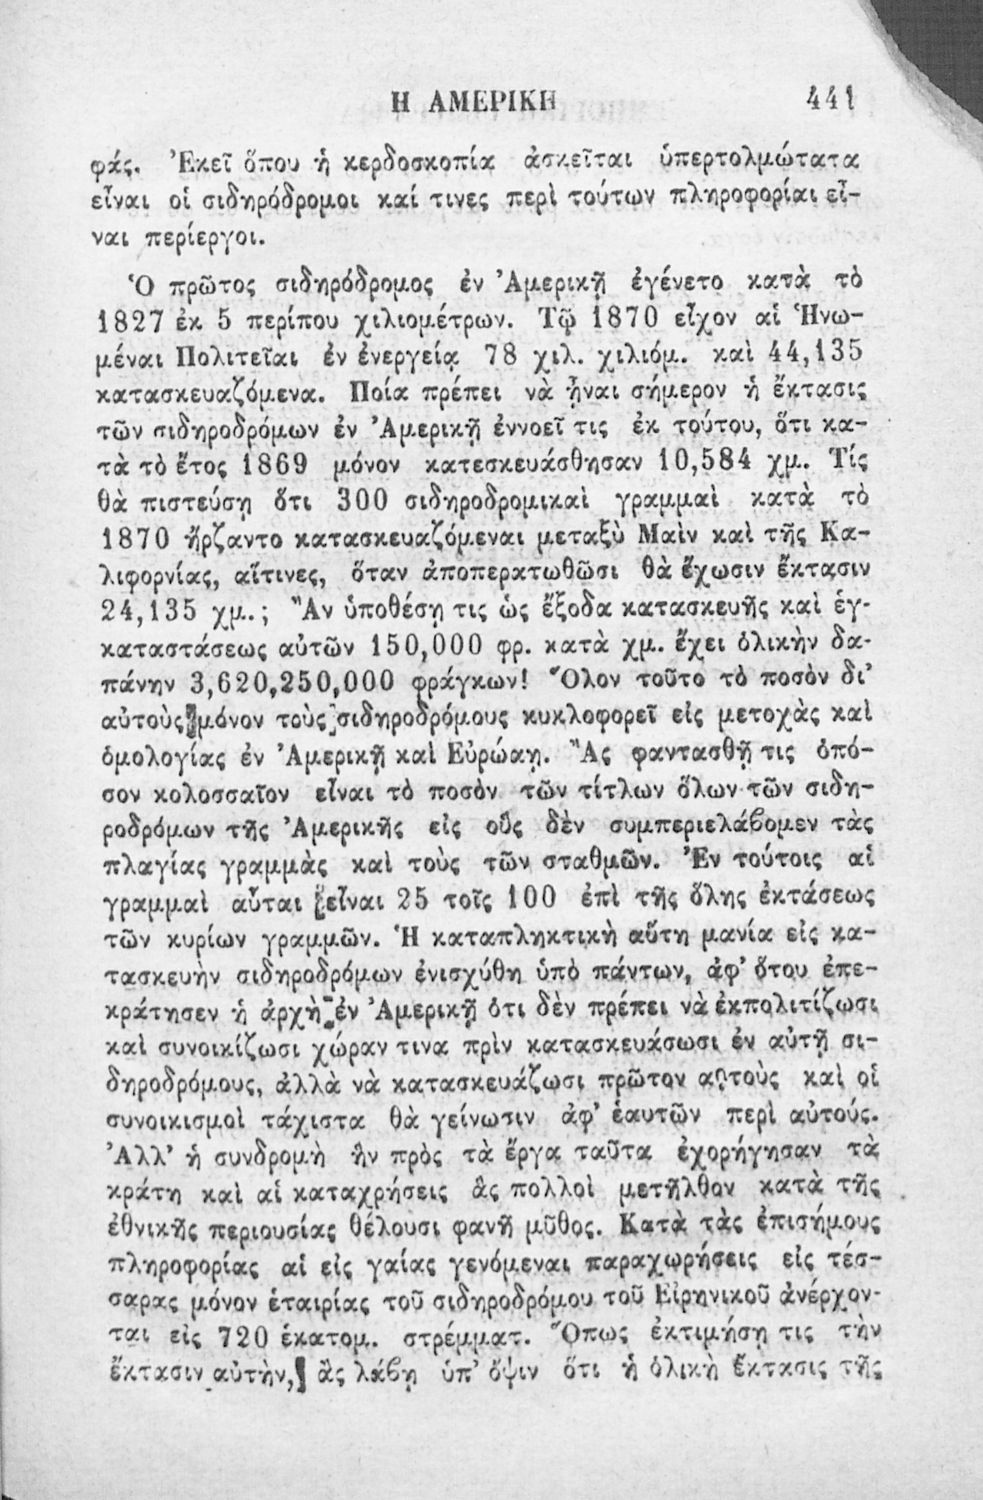 Η ΑΜΕΡΙΚΗ 441
φάς. Ἐκεῖ ὅπου ἡ κερδοσκοπία ἀσκεῖται ὑπερτολμώτατα
εἶναι οἱ σιδηρόδρομοι καί τινες περὶ τούτων πληροφορίαι εἶ-
ναι περίεργοι.
Ὁ πρῶτος σιδηρόδρομος ἐν Ἀμερικῇ ἐγένετο κατὰ τὸ
1827 ἐκ 5 περίπου χιλιομέτρων. Τῷ 1870 εἶχον αἱ Ἡνω-
μέναι Πολιτεῖαι ἐν ἐνεργείᾳ 78 χιλ. χιλιόμ. καὶ 44,135
κατασκευαζόμενα. Ποία πρέπει νὰ ἦναι σήμερον ἡ ἔκτασις
τῶν σιδηροδρόμων ἐν Ἀμερικῇ ἐννοεῖ τις ἐκ τούτου, ὅτι κα-
τὰ τὸ ἔτος 1869 μόνον κατεσκευάσθησαν 10,584 χμ. Τίς
θὰ πιστεύσῃ ὅτι 300 σιδηροδρομικαὶ γραμμαὶ κατὰ τὸ
1870 ἤρζαντο κατασκευαζόμεναι μεταξὺ Μαὶν καὶ τῆς Κα-
λιφορνίας, αἵτινες, ὅταν ἀποπερατωθῶσι θὰ ἔχωσιν ἔκτασιν
24,135 χμ.; Ἂν ὑποθέσῃ τις ὡς ἔξοδα κατασκευῆς καὶ ἐγ-
καταστάσεως αὐτῶν 150,000 φρ. κατὰ χμ. ἔχει ὁλικὴν δα-
πάνην 3,620,250,000 φράγκων! Ὅλον τοῦτο τὸ ποσὸν δι'
αὐτοὺς μόνον τοὺς σιδηροδρόμους κυκλοφορεῖ εἰς μετοχὰς καὶ
ὁμολογίας ἐν Ἀμερικῇ καὶ Εὐρώπῃ. Ἂς φαντασθῇ τις ὁπό-
σον κολοσσαῖον εἶναι τὸ ποσὸν τῶν τίτλων ὅλων τῶν σιδη-
ροδρόμων τῆς Ἀμερικῆς εἰς οὓς δὲν συμπεριελάβομεν τὰς
πλαγίας γραμμὰς καὶ τοὺς τῶν σταθμῶν. Ἐν τούτοις αἱ
γραμμαὶ αὗται εἶναι 25 τοῖς 100 ἐπὶ τῆς ὅλης ἐκτάσεως
τῶν κυρίων γραμμῶν. Ἡ καταπληκτικὴ αὕτη μανία εἰς κα-
τασκευὴν σιδηροδρόμων ἐνισχύθη ὑπὸ πάντων, ἀφ' ὅτου ἐπε-
κράτησεν ἡ ἀρχὴ ἐν Ἀμερικῇ ὅτι δὲν πρέπει νὰ ἐκπολιτίζωσι
καὶ συνοικίζωσι χώραν τινα πρὶν κατασκευάσωσι ἐν αὐτῇ σι-
δηροδρόμους, ἀλλὰ νὰ κατασκευάζωσι πρῶτον αὐτοὺς καὶ οἱ
συνοικισμοὶ τάχιστα θὰ γείνωσιν ἀφ' ἑαυτῶν περὶ αὐτούς.
Ἀλλ' ἡ συνδρομὴ ἣν πρὸς τὰ ἔργα ταῦτα ἐχορήγησαν τὰ
κράτη καὶ αἱ καταχρήσεις ἃς πολλοὶ μετῆλθον κατὰ τῆς
ἐθνικῆς περιουσίας θέλουσι φανῆ μῦθος. Κατὰ τὰς ἐπισήμους
πληροφορίας αἱ εἰς γαίας γενόμεναι παραχωρήσεις εἰς τέσ-
σαρας μόνον ἑταιρίας τοῦ σιδηροδρόμου τοῦ Εἰρηνικοῦ ἀνέρχον-
ται εἰς 720 ἑκατομ. στρέμματ. Ὅπως ἐκτιμήσῃ τις τὴν
ἔκτασιν αὐτὴν, ἂς λάβῃ ὑπ' ὄψιν ὅτι ἡ ὁλικὴ ἔκτασις τῆς